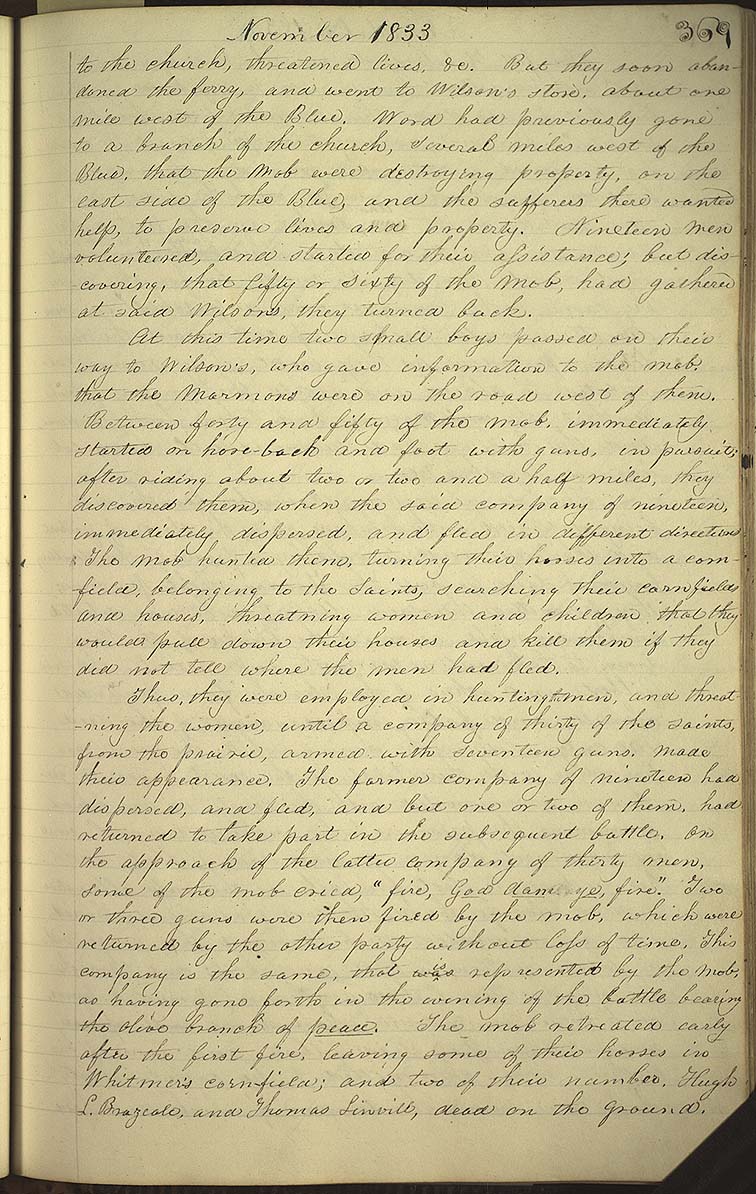 November 1833 369
to the church, threatened lives, &c. But they soon aban-
doned the ferry, and went to Wilson's store, about one
mile west of the Blue. Word had previously gone
to a branch of the church, several miles west of the
Blue, that the mob were destroying property, on the
east side of the Blue, and the sufferers there wanted
help, to preserve lives and property. Nineteen men
volunteered, and started for their assistance; but dis-
covering, that fifty or sixty of the mob, had gathered
at said Wilsons, they turned back.
At this time two small boys passed on their
way to Wilson's, who gave information to the mob,
that the Marmons were on the road west of them.
Between forty and fifty of the mob, immediately
started on hore-back and foot with guns, in pursuit;
after riding about two or two and a half miles, they
discovered them, when the said company of nineteen,
immediately dispersed, and fled in different directions
The mob hunted them, turning their horses into a corn-
field, belonging to the Saints, searching their cornfields
and houses, threatning women and children that they
would pull down their houses and kill them if they
did not tell where the men had fled.
Thus, they were employed in hunting men, and threat-
-ning the women, until a company of thirty of the saints,
from the prairie, armed with seventeen guns, made
their appearance. The former company of nineteen had
dispersed, and fled, and but one or two of them, had
returned to take part in the subsequent battle. On
the approach of the latter company of thirty men,
some of the mob cried, "fire, God dam ye, fire". Two
or three guns were then fired by the mob, which were
returned by the other party without loss of time. This
company is the same, that is represented by the mob,
as having gone forth in the evening of the battle bearing
the olive branch of peace. The mob retreated early
after the first fire, leaving some of their horses in
Whitmer's cornfield; and two of their number, Hugh
L. Brazeale, and Thomas Linvill, dead on the ground.